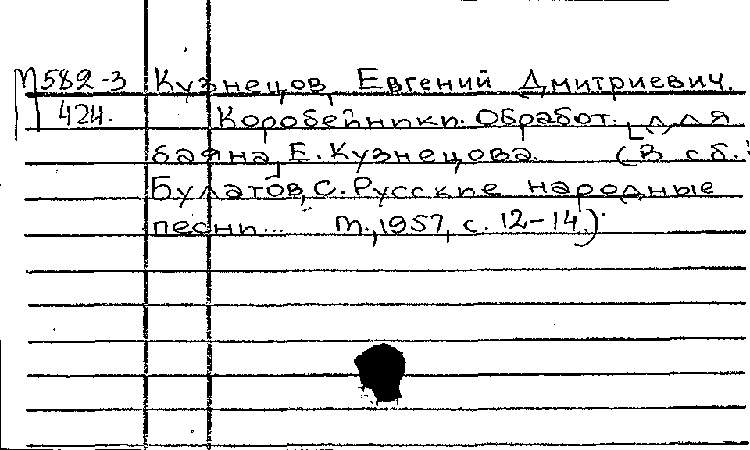 М582-3 Кузнецов, Евгений Дмитриевич.
424. Коробейники. Обработ. для
баяна Е. Кузнецова. (В сб.:
Булатов, С. Русские народные
песни... М., 1957, с. 12-14.)